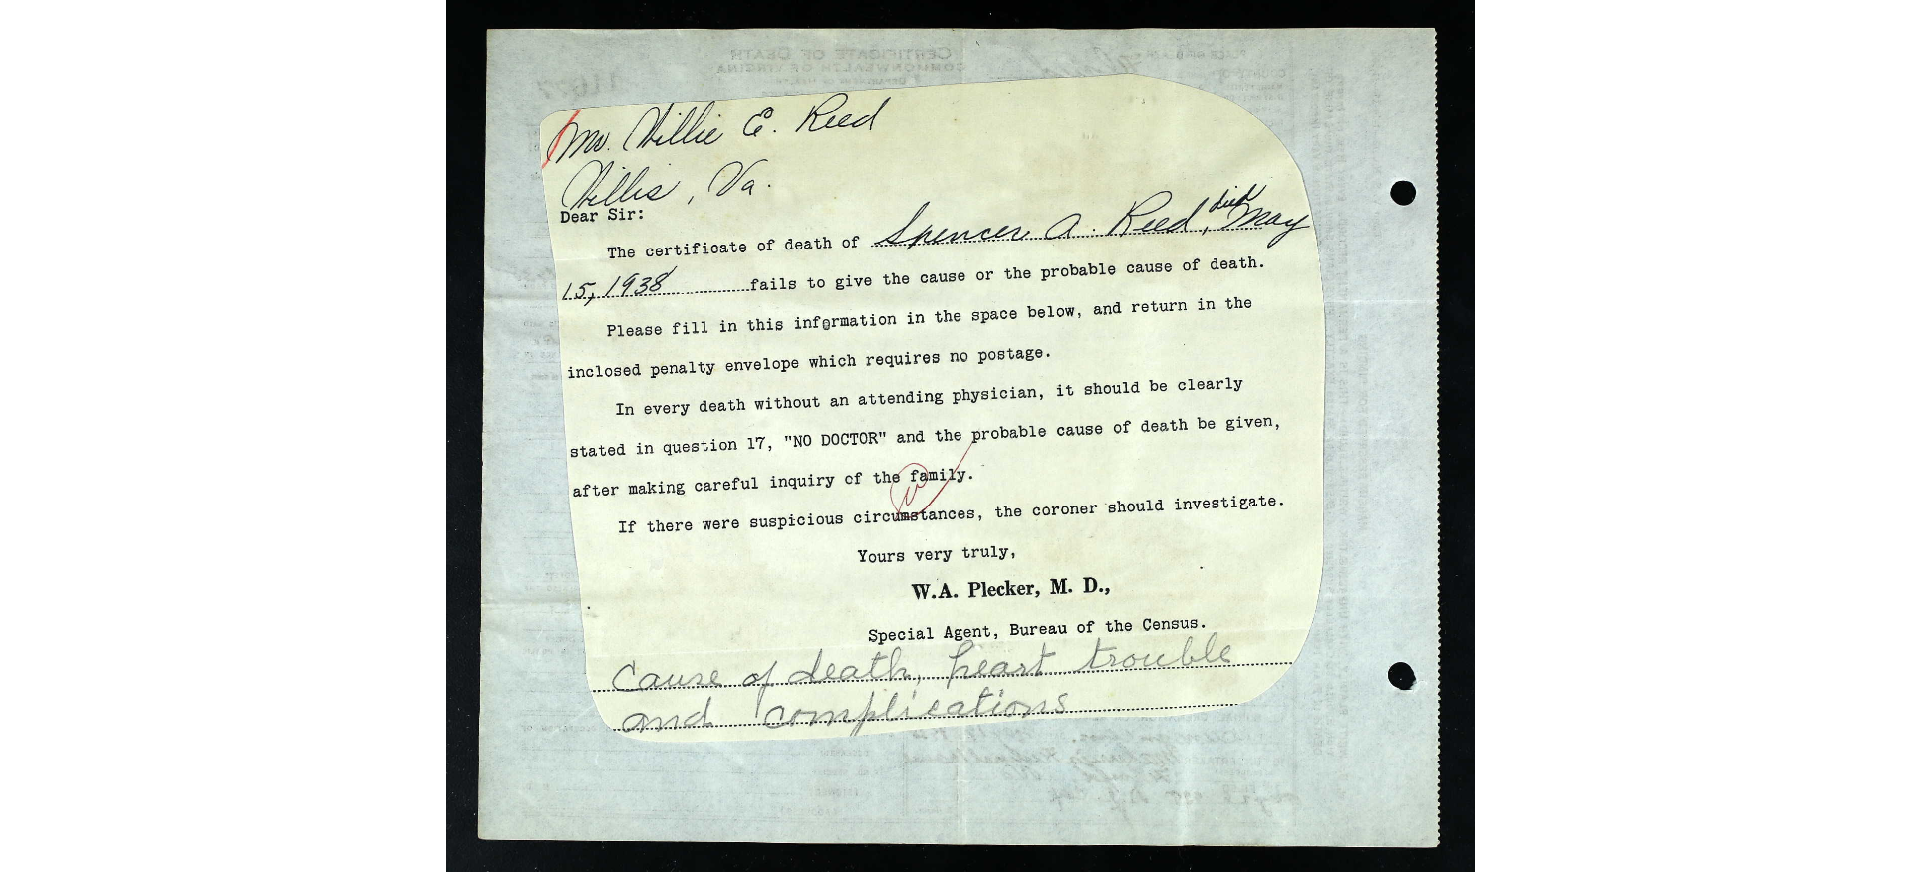 Mr. Willie E. Reed
Willis, Va.
Dear Sir:
The certificate of death of Spencer A. Reed, died May
15, 1938 fails to give the cause or the probable cause of death.
Please fill in this information in the space below, and return in the
inclosed penalty envelope which requires no postage.
In every death without an attending physician, it should be clearly
stated in question 17, "NO DOCTOR" and the probable cause of death be given,
after making careful inquiry of the family.
If there were suspicious circumstances, the coroner should investigate.
Yours very truly,
W.A. Plecker, M. D.,
Special Agent, Bureau of the Census.
Cause of death, heart trouble
and complications